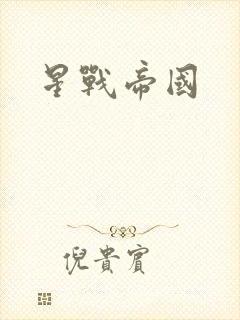 星戰帝國
倪貴賓